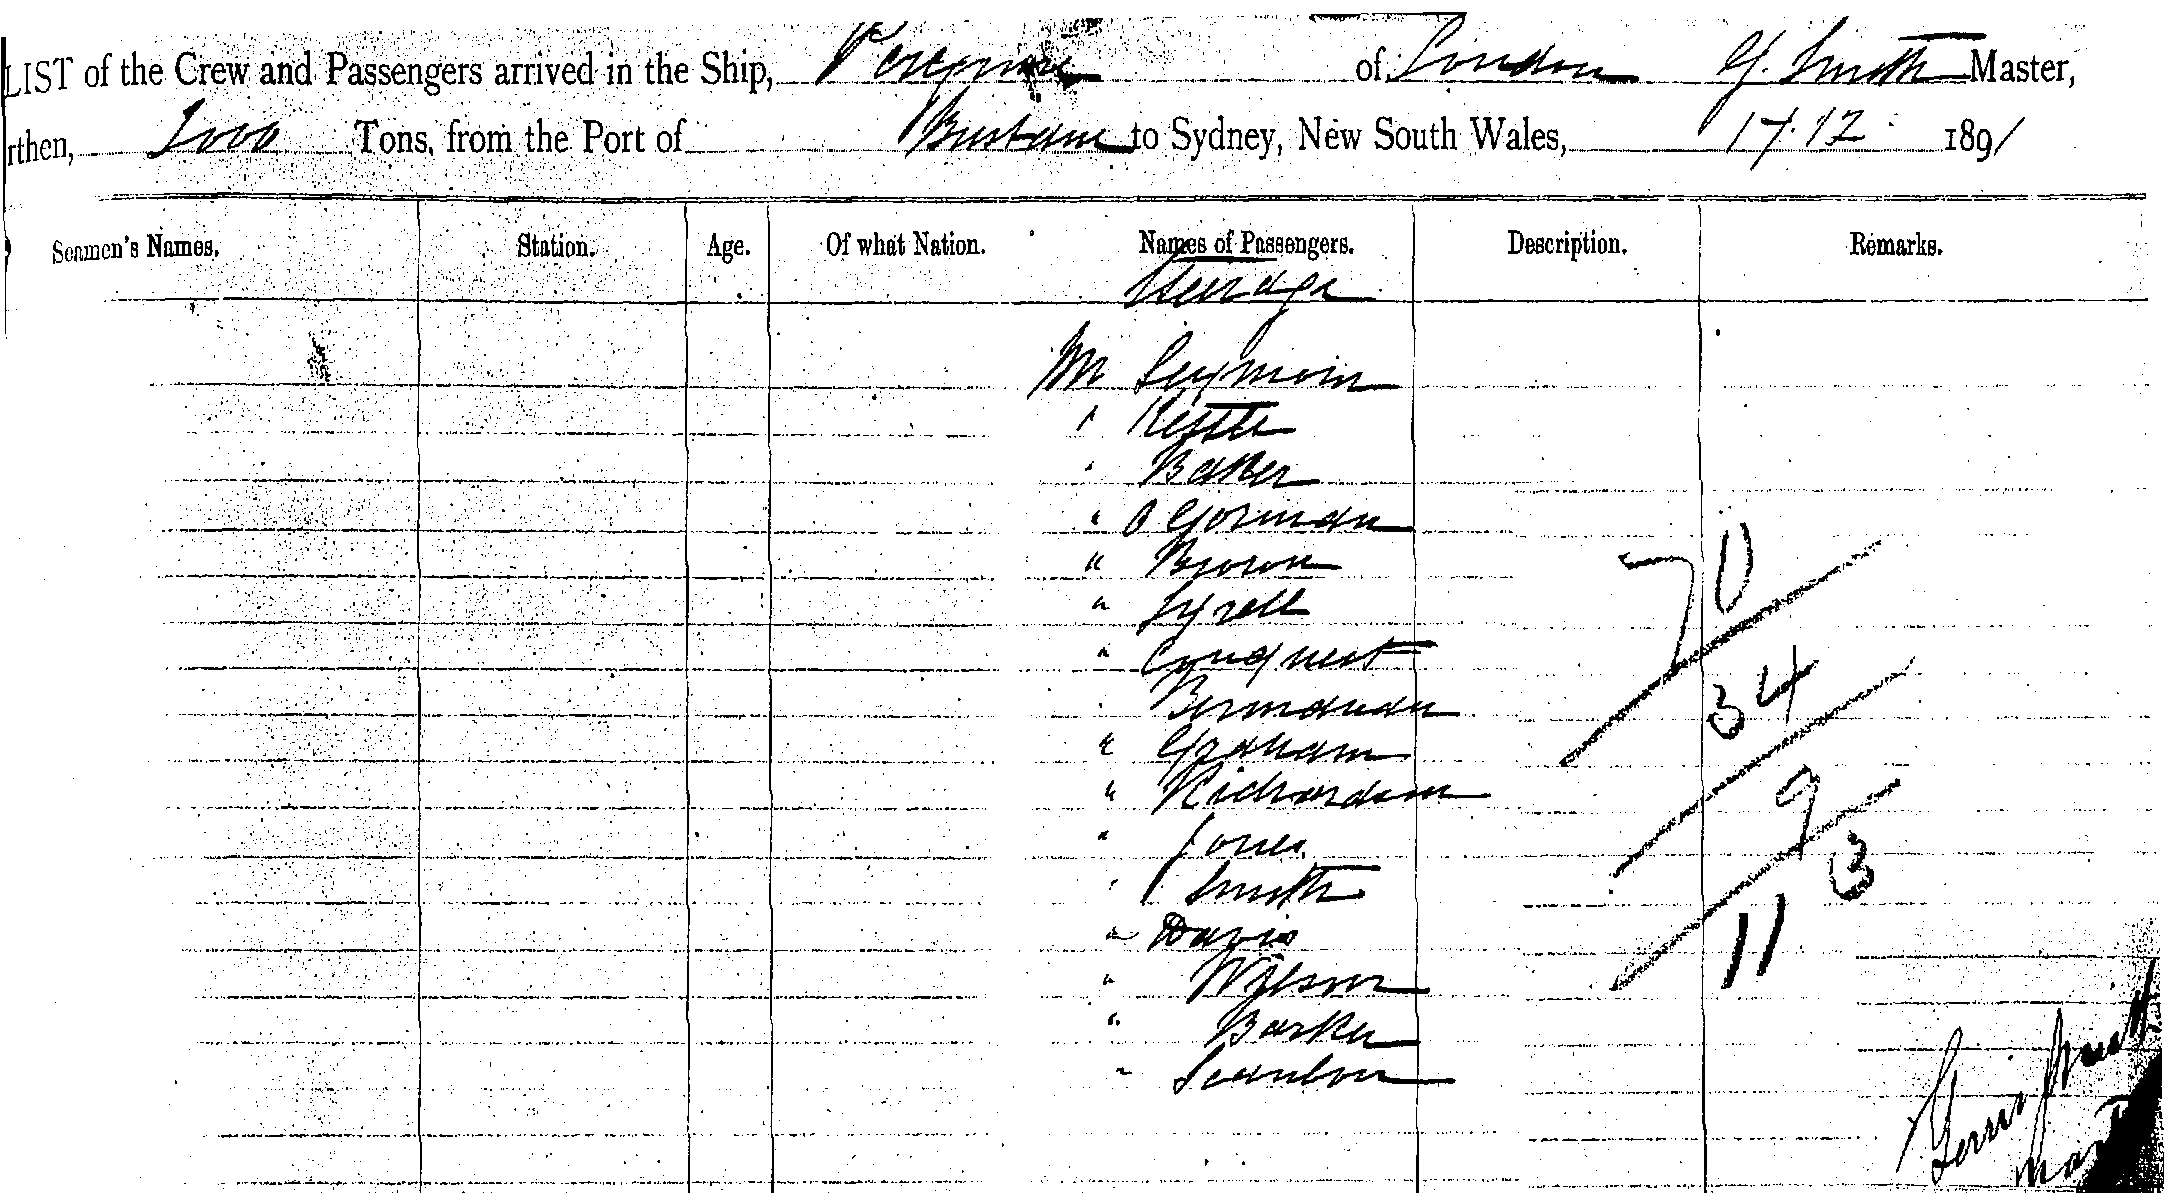 LIST of the Crew and Passengers arrived in the Ship, Peregrine of London G. Smith Master,
rthen, Tons, from the Port of Brisbane to Sydney, New South Wales, 17.12 1891
Seamen's Names. Station. Age. Of what Nation. Names of Passengers. Description. Remarks.
Steerage
Mr Seymour
" Kesste
" Baker
" O Gorman
" Brown
" Tyrell
" Conquest
"
" Graham
" Richardson
" Jones
" Smith
" Davis
" Wilson
" Barker
" Scanlon
70
34
9
3
11